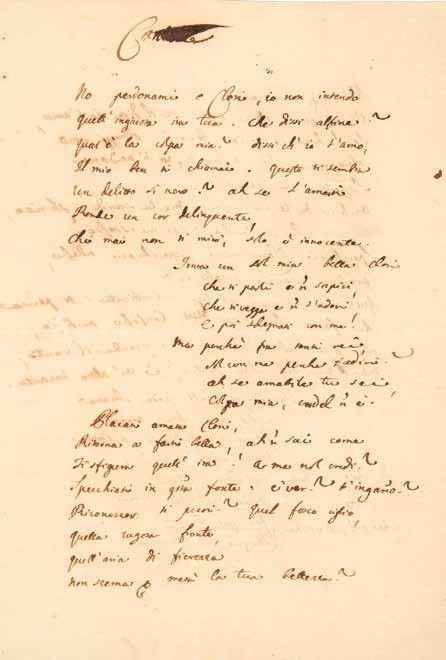 Cantata
No perdonami o Clori, io non intendo
quell' ingiusta ira tua. che dissi alfine?
qual' è la colpa mia? dissi ch'io t'amo,
Il mio ben ti chiamai. questo ti sembra
un delitto sì nero? ah se l'amarti
Rende un cor delinquente,
Chi mai non ti mirò, solo è innocente.
Trova un sol mia bella Clori
che ti parli e ñ sospiri,
che ti vegga e ñ t'adori,
E poi sdegnati con me!
Ma perchè fra tanti rei
Sol con me perche t'adiri?
ah se amabile tu sei
Colpa mia, crudel ñ è.
Placati amata Clori,
Ritorna a farti bella, ah ñ sai come
Ti sfigura quell' ira! a me nol credi?
Specchiati in qsta fonte: è ver? t'inganno?
Riconoscer ti puoi? quel fosco ciglio,
quella rugosa fronte,
quell' aria di fierezza
non scema metà la tua bellezza?